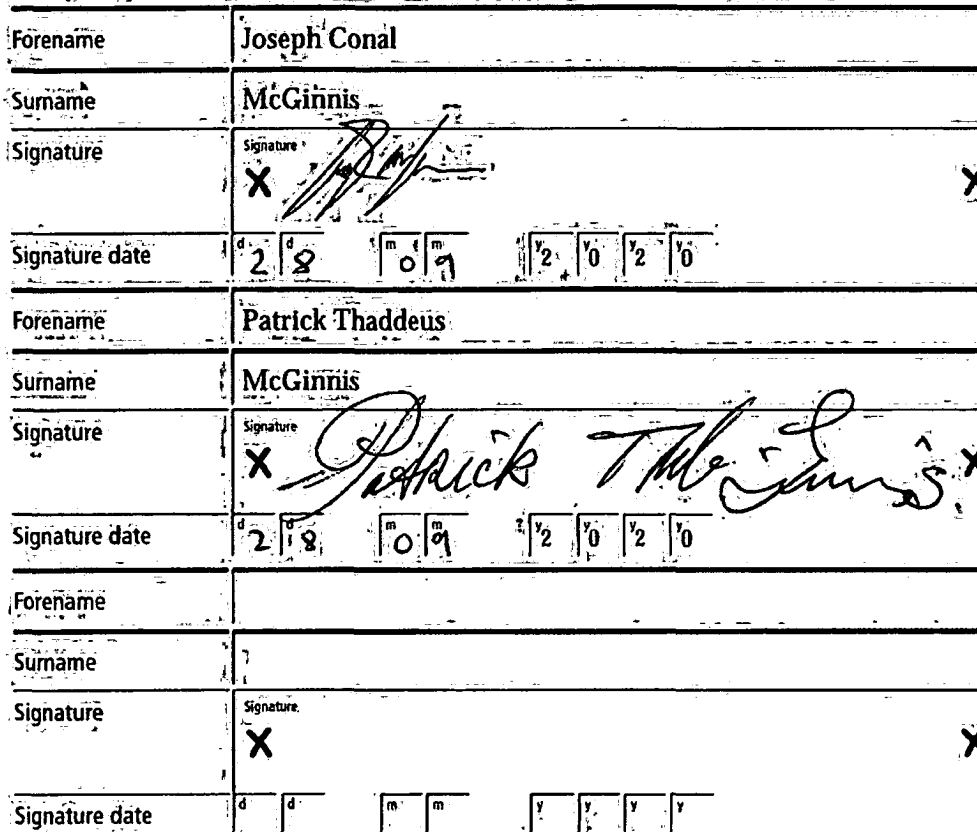 Forename Joseph Conal
Surname McGinnis
Signature Signature
X X
Signature date d2 d8 m0 m9 y2 y0 y2 y0
Forename Patrick Thaddeus
Surname McGinnis
Signature Signature
X Patrick X
Signature date d2 d8 m0 m9 y2 y0 y2 y0
Forename
Surname
Signature Signature
X X
Signature date d d m m y y y y